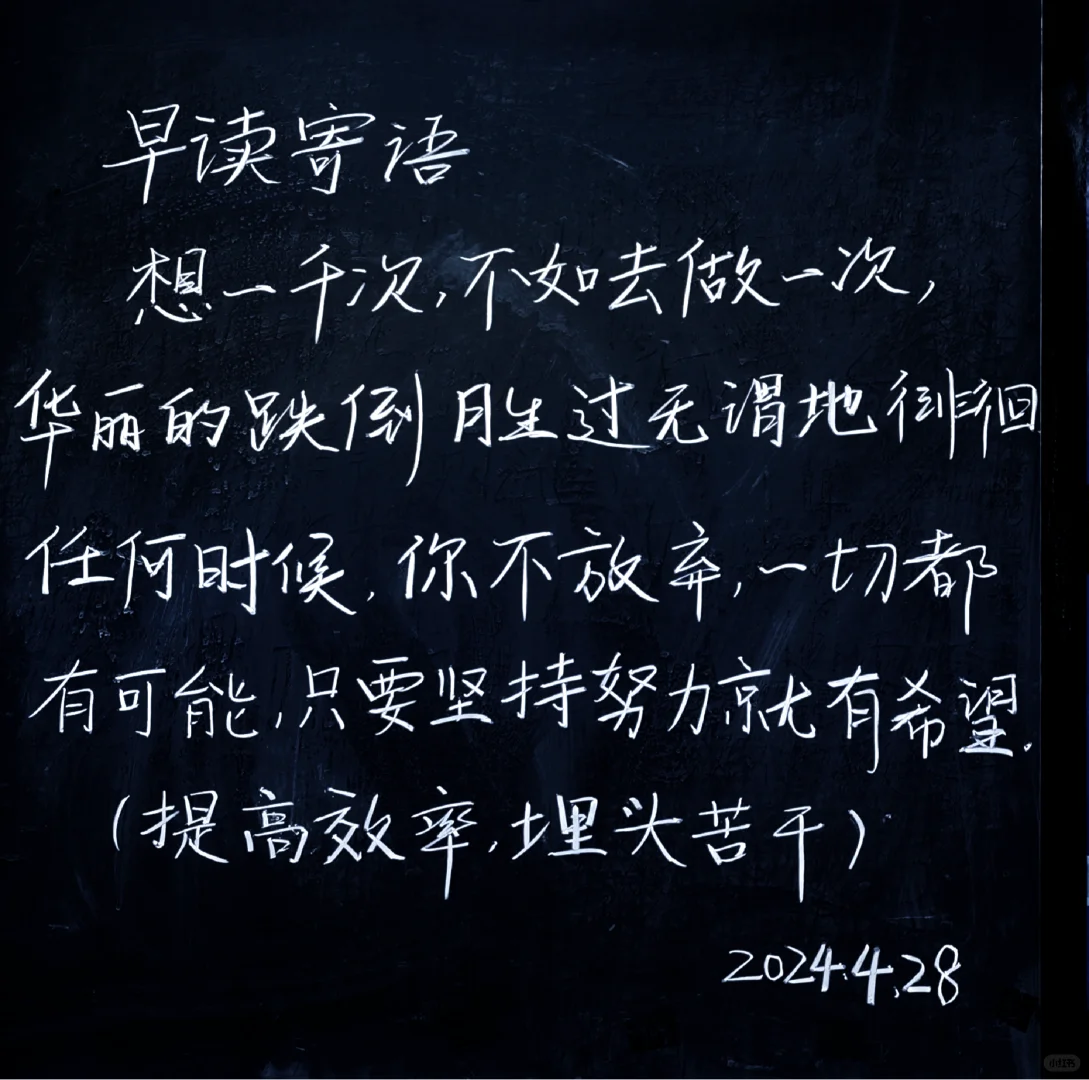 早读寄语
想一千次,不如去做一次,
华丽的跌倒胜过无谓地徘徊
任何时候,你不放弃,一切都
有可能,只要坚持努力就有希望.
(提高效率,埋头苦干)
2024.4.28
小红书